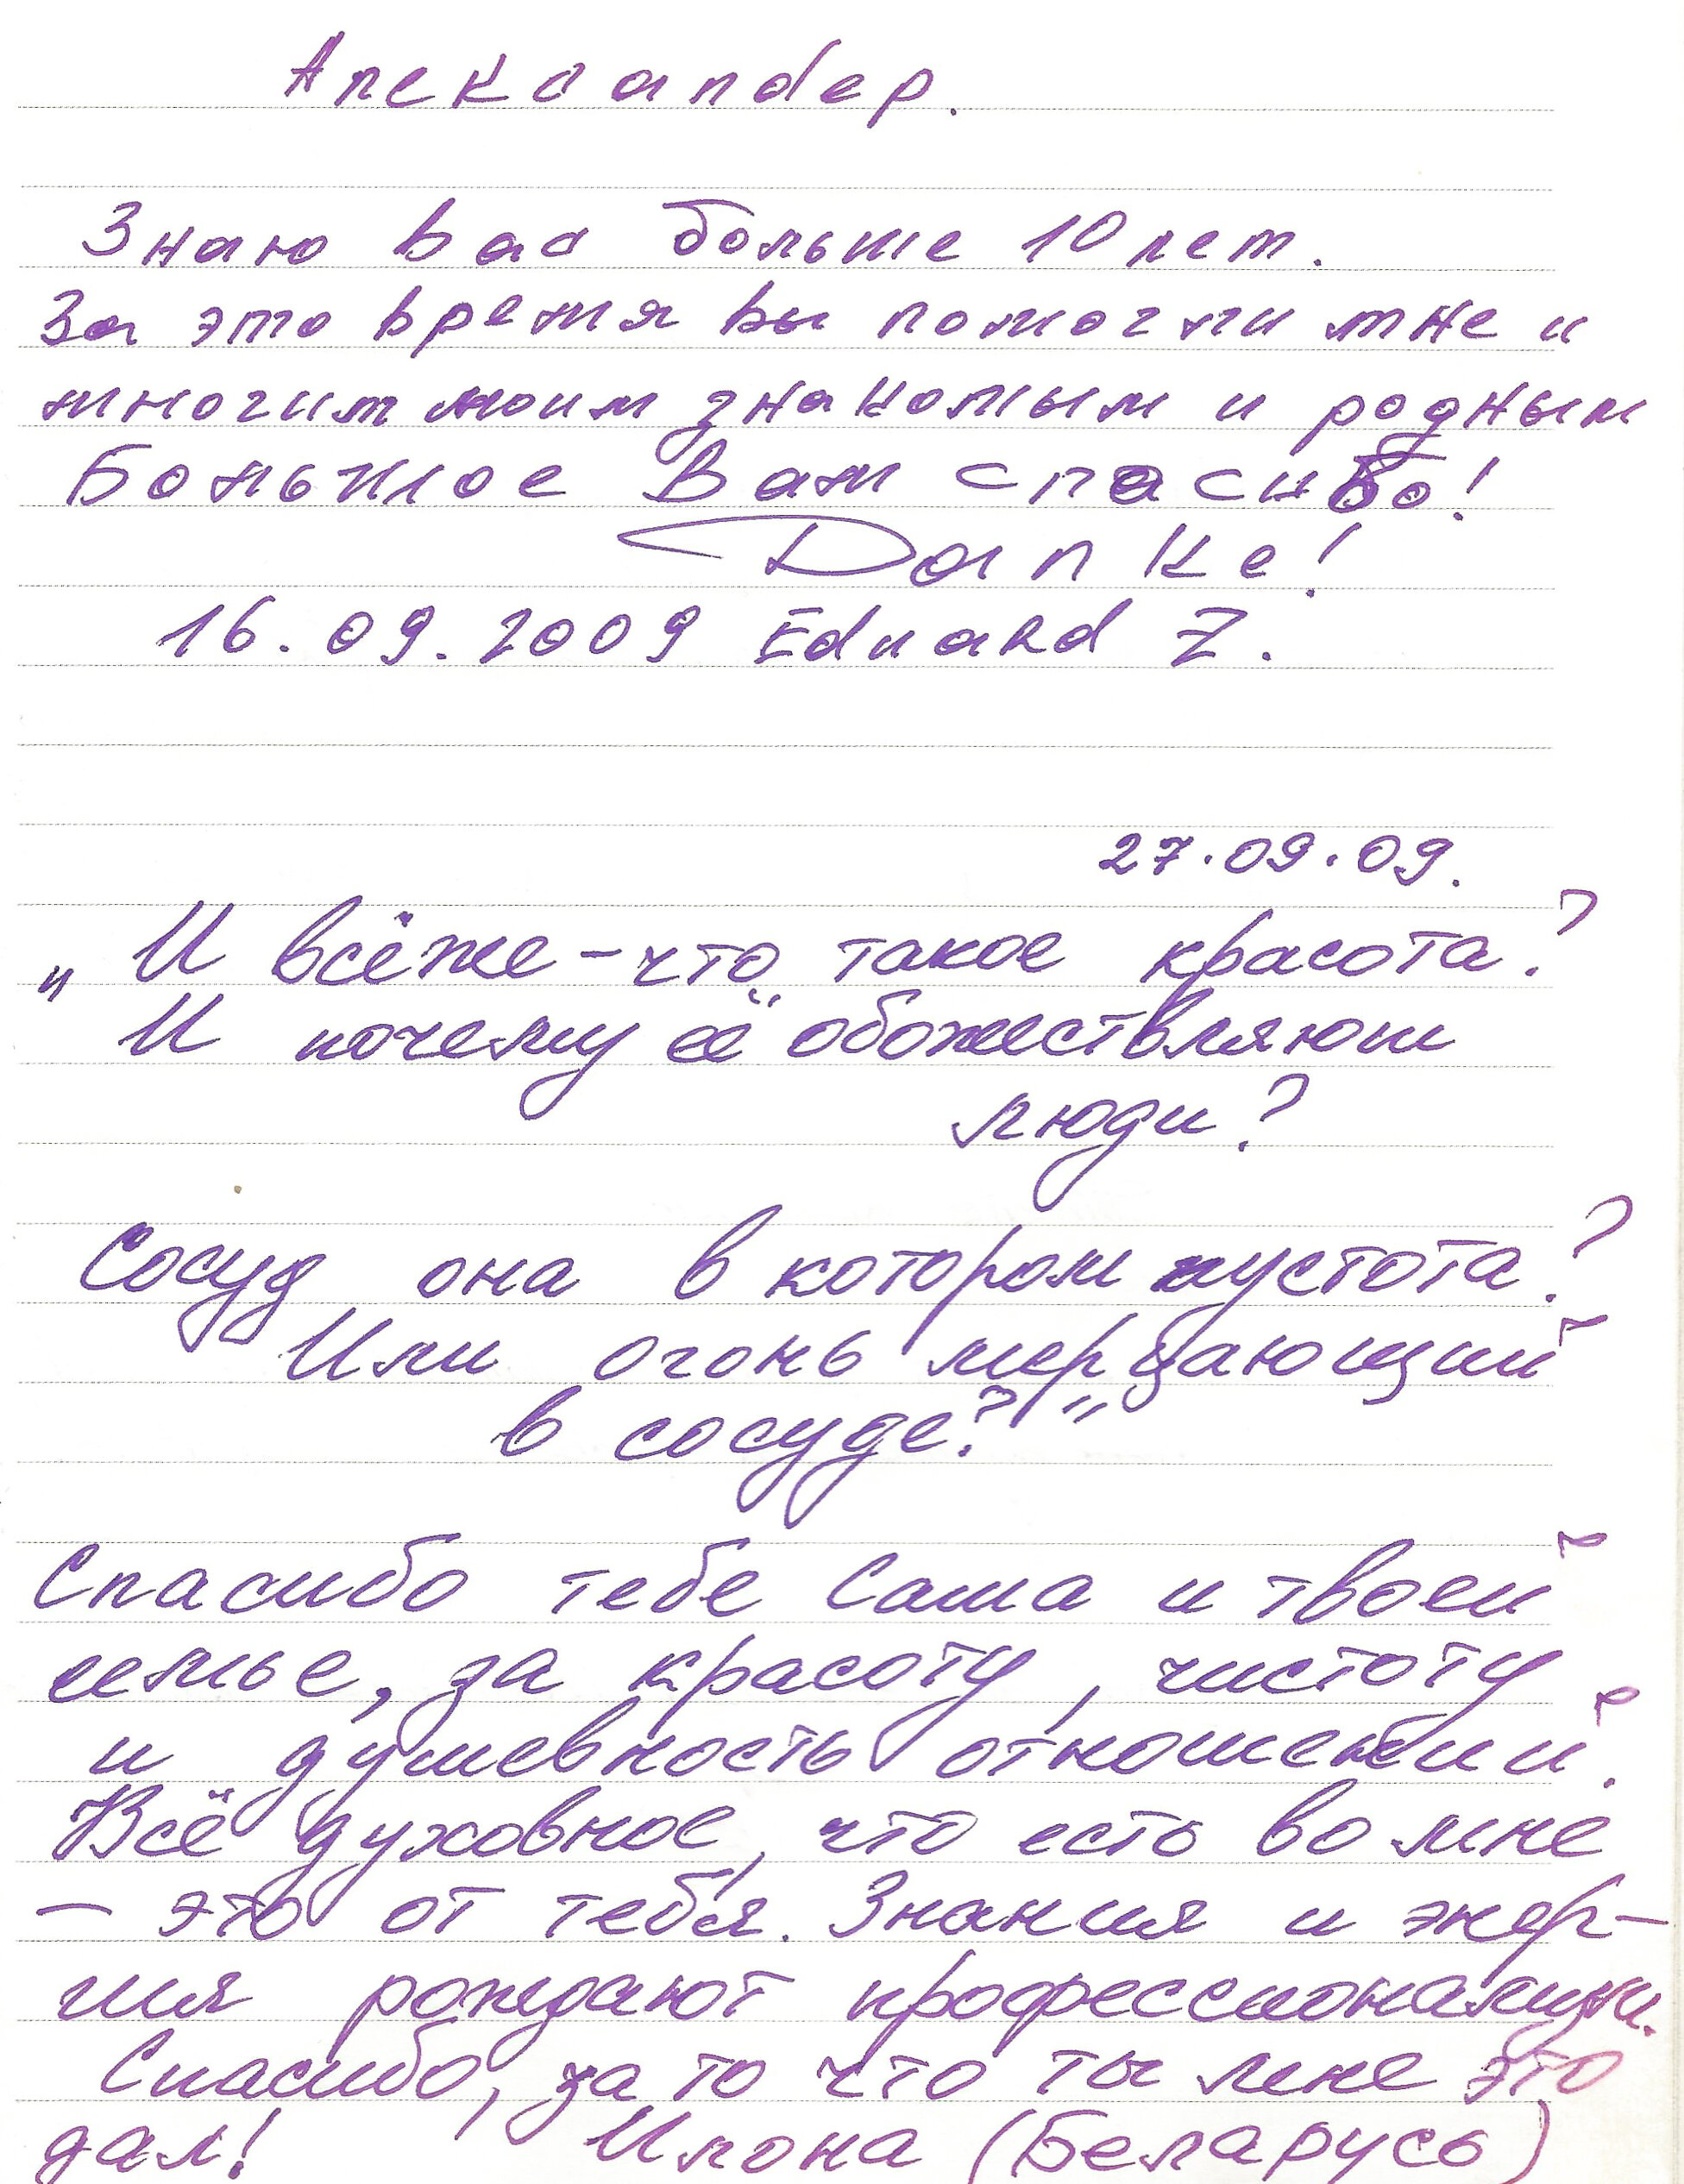 Александер.
Знаю вас больше 10 лет.
За это время вы помогли мне и
многим моим знакомым и родным
Большое Вам спасибо!
Danke!
16.09.2009 Eduard Z.
27.09.09.
„И всёже – что такое красота?
И почему её обожествляют
люди?
Сосуд она в котором пустота?
Или огонь мерцающий
в сосуде?"
Спасибо тебе Саша и твоей
семье, за красоту, чистоту
и душевность отношений.
Всё духовное, что есть во мне
– это от тебя. Знания и энер-
гия рождают профессионализм.
Спасибо, за то что ты мне это
дал! Илона (Беларусь)